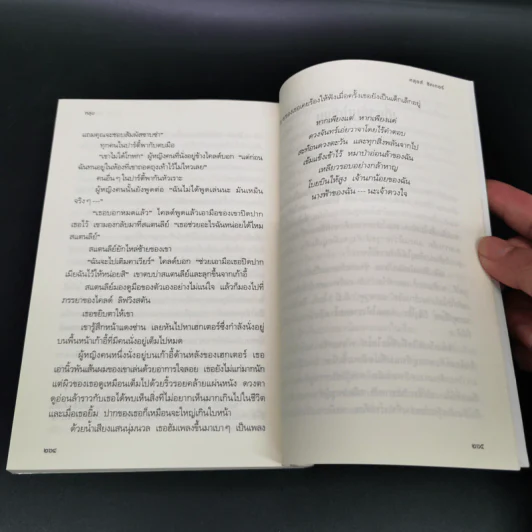 แถมคุณจะชอบสัมผัสซาบซ่า"
ทุกคนในปาร์ตี้พากันตบมือ
"เขาไม่ได้โกหก" ผู้หญิงคนที่นั่งอยู่ข้างโคลด์บอก "แต่ก่อน
ฉันทนอยู่ในห้องที่เขาถอดถุงเท้าไว้ไม่ไหวเลย"
คนอื่นๆ ในปาร์ตี้พากันหัวเราะ
ผู้หญิงคนนั้นยังพูดต่อ "ฉันไม่ได้พูดเล่นนะ มันเหม็น
จริงๆ —"
"เธอบอกหมดแล้ว" โคลด์พูดแล้วเอามือของเขาปิดปาก
เธอไว้ เขามองกลับมาที่สแตนลีย์ "เธอช่วยอะไรฉันหน่อยได้ไหม
สแตนลีย์"
สแตนลีย์ยักไหล่ซ้ายของเขา
"ฉันจะไปเติมคาเวียร์" โคลด์บอก "ช่วยเอามือเธอปิดปาก
เมียฉันไว้ให้หน่อยสิ" เขาตบบ่าสแตนลีย์และลุกขึ้นจากเก้าอี้
สแตนลีย์มองดูมือของตัวเองอย่างไม่แน่ใจ แล้วก็มองไปที่
ภรรยาของโคลด์ ลิฟวิงสตัน
เธอขยิบตาให้เขา
เขารู้สึกหน้าแดงซ่าน เลยหันไปหาเฮกเตอร์ซึ่งกำลังนั่งอยู่
บนพื้นหน้าเก้าอี้ที่มีคนนั่งอยู่เต็มไปหมด
ผู้หญิงคนหนึ่งนั่งอยู่บนเก้าอี้ด้านหลังของเฮกเตอร์ เธอ
เอานิ้วพันเส้นผมของเขาเล่นด้วยอาการใจลอย เธอยังไม่แก่มากนัก
แต่ผิวของเธอดูเหมือนเต็มไปด้วยริ้วรอยคล้ายแผ่นหนัง ดวงตา
ดูอ่อนล้าราวกับเธอได้พบเห็นสิ่งที่ไม่อยากเห็นมากเกินไปในชีวิต
และเมื่อเธอยิ้ม ปากของเธอก็เหมือนจะใหญ่เกินใบหน้า
ด้วยน้ำเสียงแสนนุ่มนวล เธอฮัมเพลงขึ้นมาเบาๆ เป็นเพลง
เคยร้องให้ฟังเมื่อครั้งเธอยังเป็นเด็กเล็กอยู่
หากเพียงแต่ หากเพียงแต่
ดวงจันทร์เอ่ยวาจาโดยไร้คำตอบ
สะท้อนดวงตะวัน และทุกสิ่งพลันจากไป
เข้มแข็งเข้าไว้ หมาป่าอ่อนล้าของฉัน
เหลียวรอบอย่างกล้าหาญ
โบยบินให้สูง เจ้านกน้อยของฉัน
นางฟ้าของฉัน — นะเจ้าดวงใจ